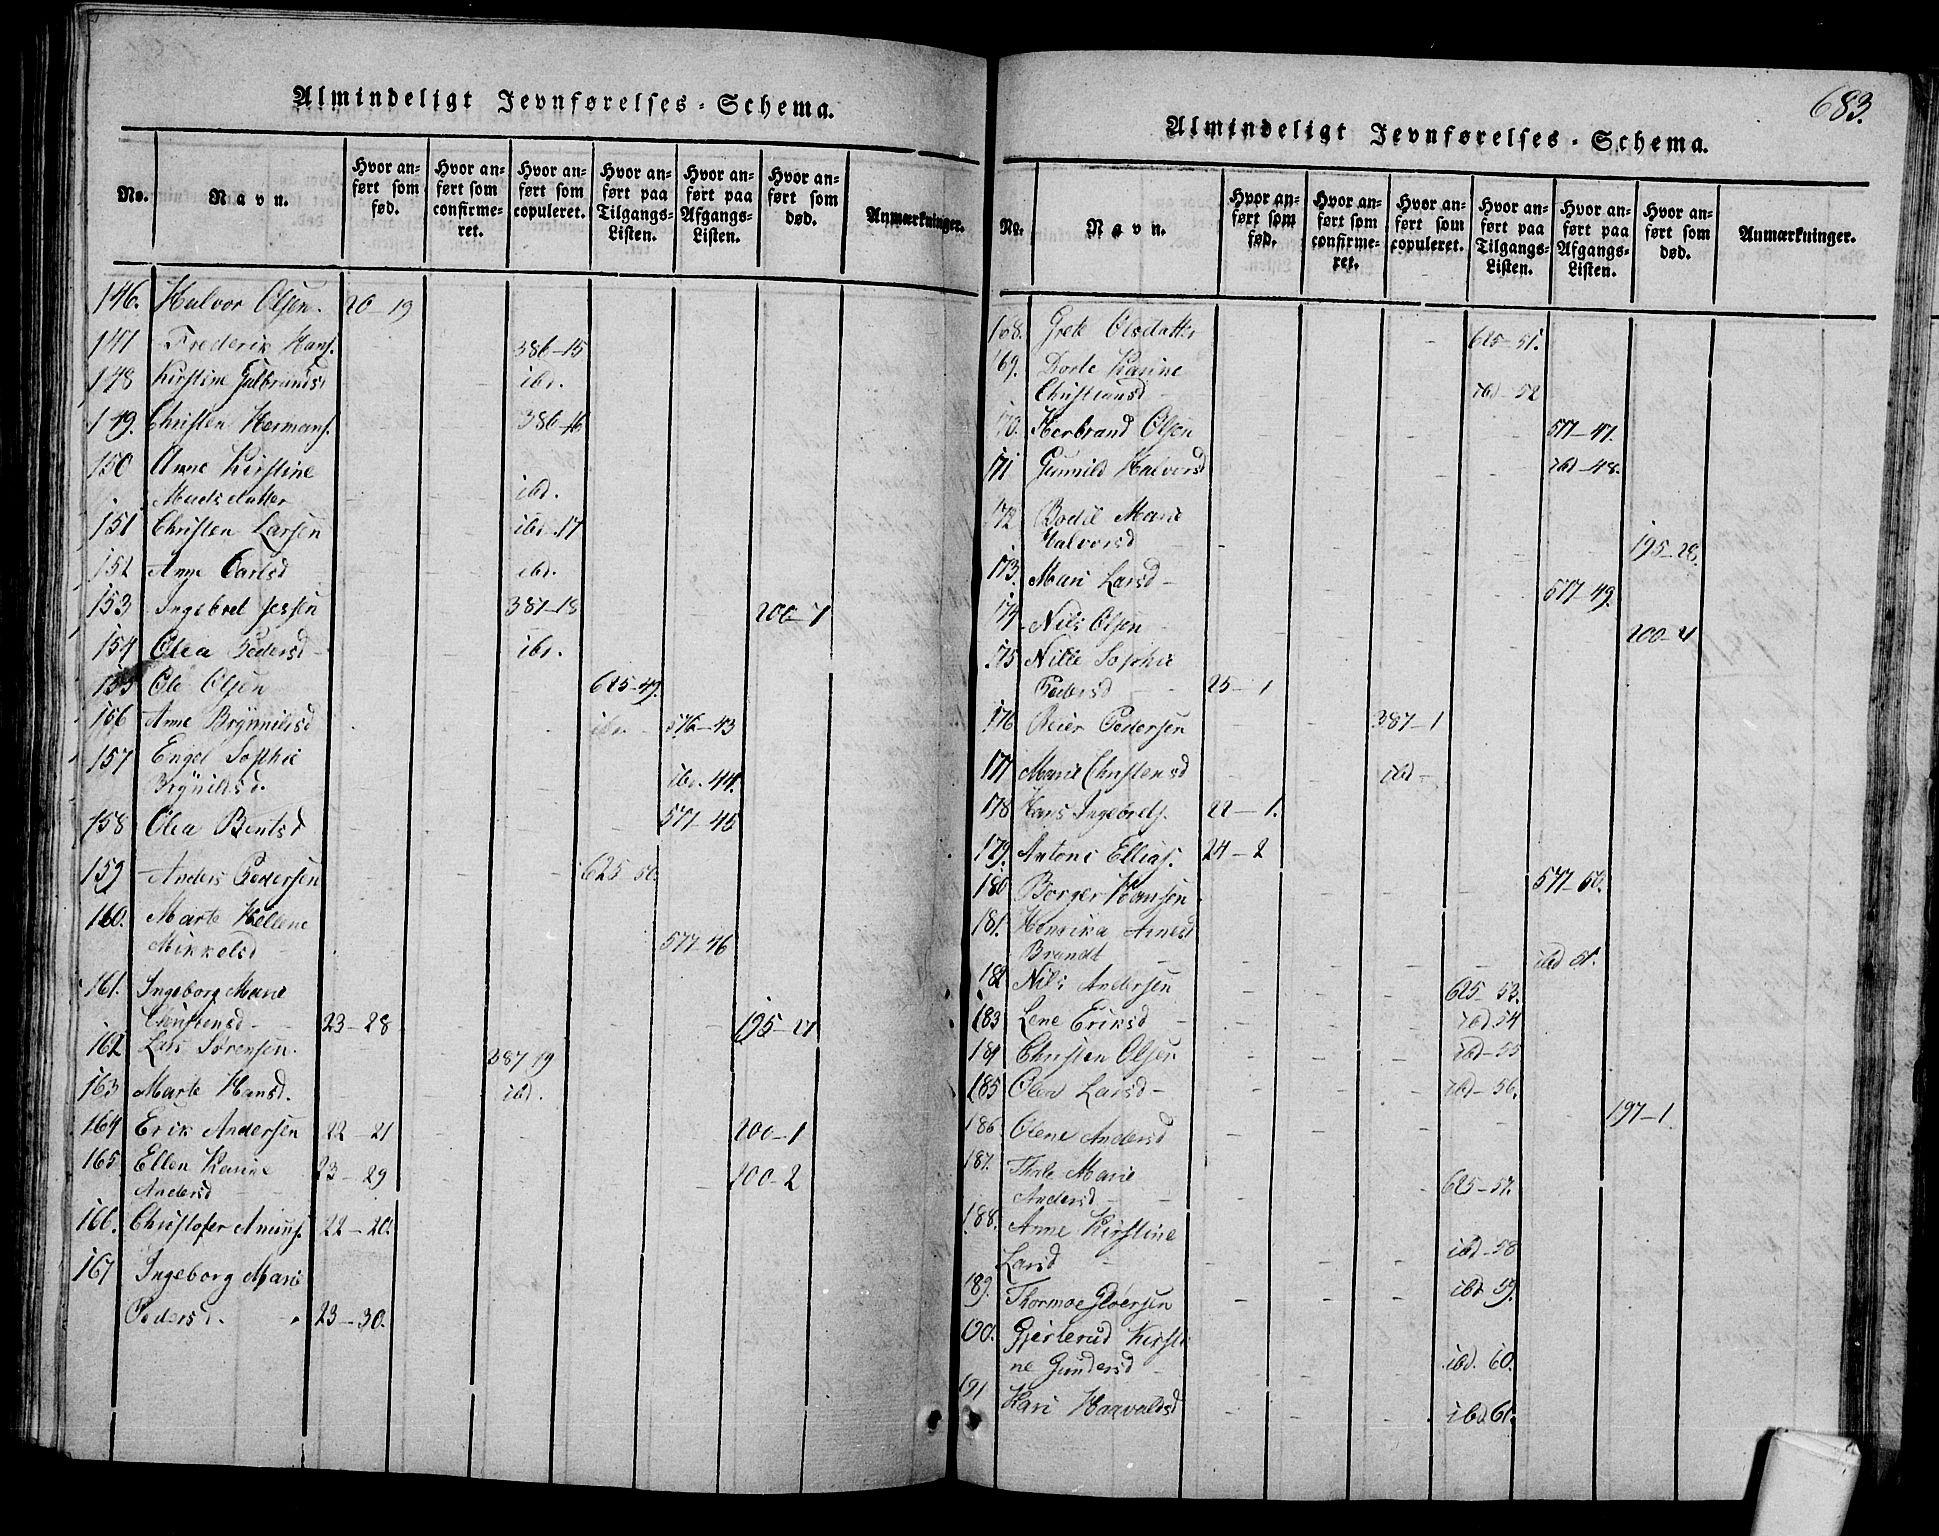 Almindeligt Jevnførelses-Schema.
No. Navn. Hvor anført som fød. Hvor anført som confirmeret. Hvor anført som copuleret. Hvor anført paa Tilgangs-Listen. Hvor anført paa Afgangs-Listen. Hvor anført som død. Anmærkninger.
146. Halvor Olsen. 20-19
147 Frederik Hans. 386-15
148 Kirstine Gulbrands ibd.
149. Christen Hermans. 386-16
150 Anne Kirstine
Madsdatter ibd.
151 Christen Larsen ibd-17
152 Anne Carlsd ibd.
153 Ingebret Jessen 387-18 200-1
154 Olea Pedersd - ibd.
155 Ole Olsen 625-49.
156 Anne Brynnildsd ibd. 576-43
157 Engel Sophie
Brynildsd. ibd. 44.
158 Olea Bentsd 577-45
159 Anders Pedersen 625-50.
160. Marte Hellene
Mikkelsd 577-46
161. Ingeborg Marie
Christensd - 23-28 195-27
162 Lars Sørensen. 387 19
163 Marte Hansd. ibd.
164 Erik Andersen 22-21 200-1
165 Ellen Karine
Andersd 23-29 200-2
166. Christofer Amuns. 22-20.
167 Ingeborg Marie
Pedersd. 23-30.
683.
Almindeligt Jevnførelses-Schema.
No. Navn. Hvor anført som fød. Hvor anført som confirmeret. Hvor anført som copuleret. Hvor anført paa Tilgangs-Listen. Hvor anført paa Afgangs-Listen. Hvor anført som død. Anmærkninger.
168. Grete Olsdatter 625-51.
169. Dorte Karine
Christiansd ibd-52
170. Herbrand Olsen 577-47.
171 Gunnild Halvorsd ibd-48.
172 Bodil Marie
Halvorsd 195-28.
173. Mari Larsd - 577-49.
174 Nils Olsen 200-4
175 Nille Sophie
Pedersd 25-1
176 Reier Pedersen 387-1
177 Marie Christensd ibd-
178 Hans Ingebrets. 22-1.
179. Antons Ellias. 24-2
180 Borger Hansen 577-50.
181. Henrika Arnesd
Brandt ibd 51.
182 Nils Andersen 625-53.
183 Lene Eriksd - ibd 54
184 Christen Olsen ibd-55
185 Olea Larsd - ibd-56.
186 Olene Andersd 197-1.
187. Thale Marie
Andersd 625-57.
188. Anne Kirstine
Larsd ibd-58
189. Thormoe Gloersen ibd 59.
190. Gjerterud Kirsti
ne Gundersd ibd. 60.
191 Kari Haavaldsd ibd. 61.